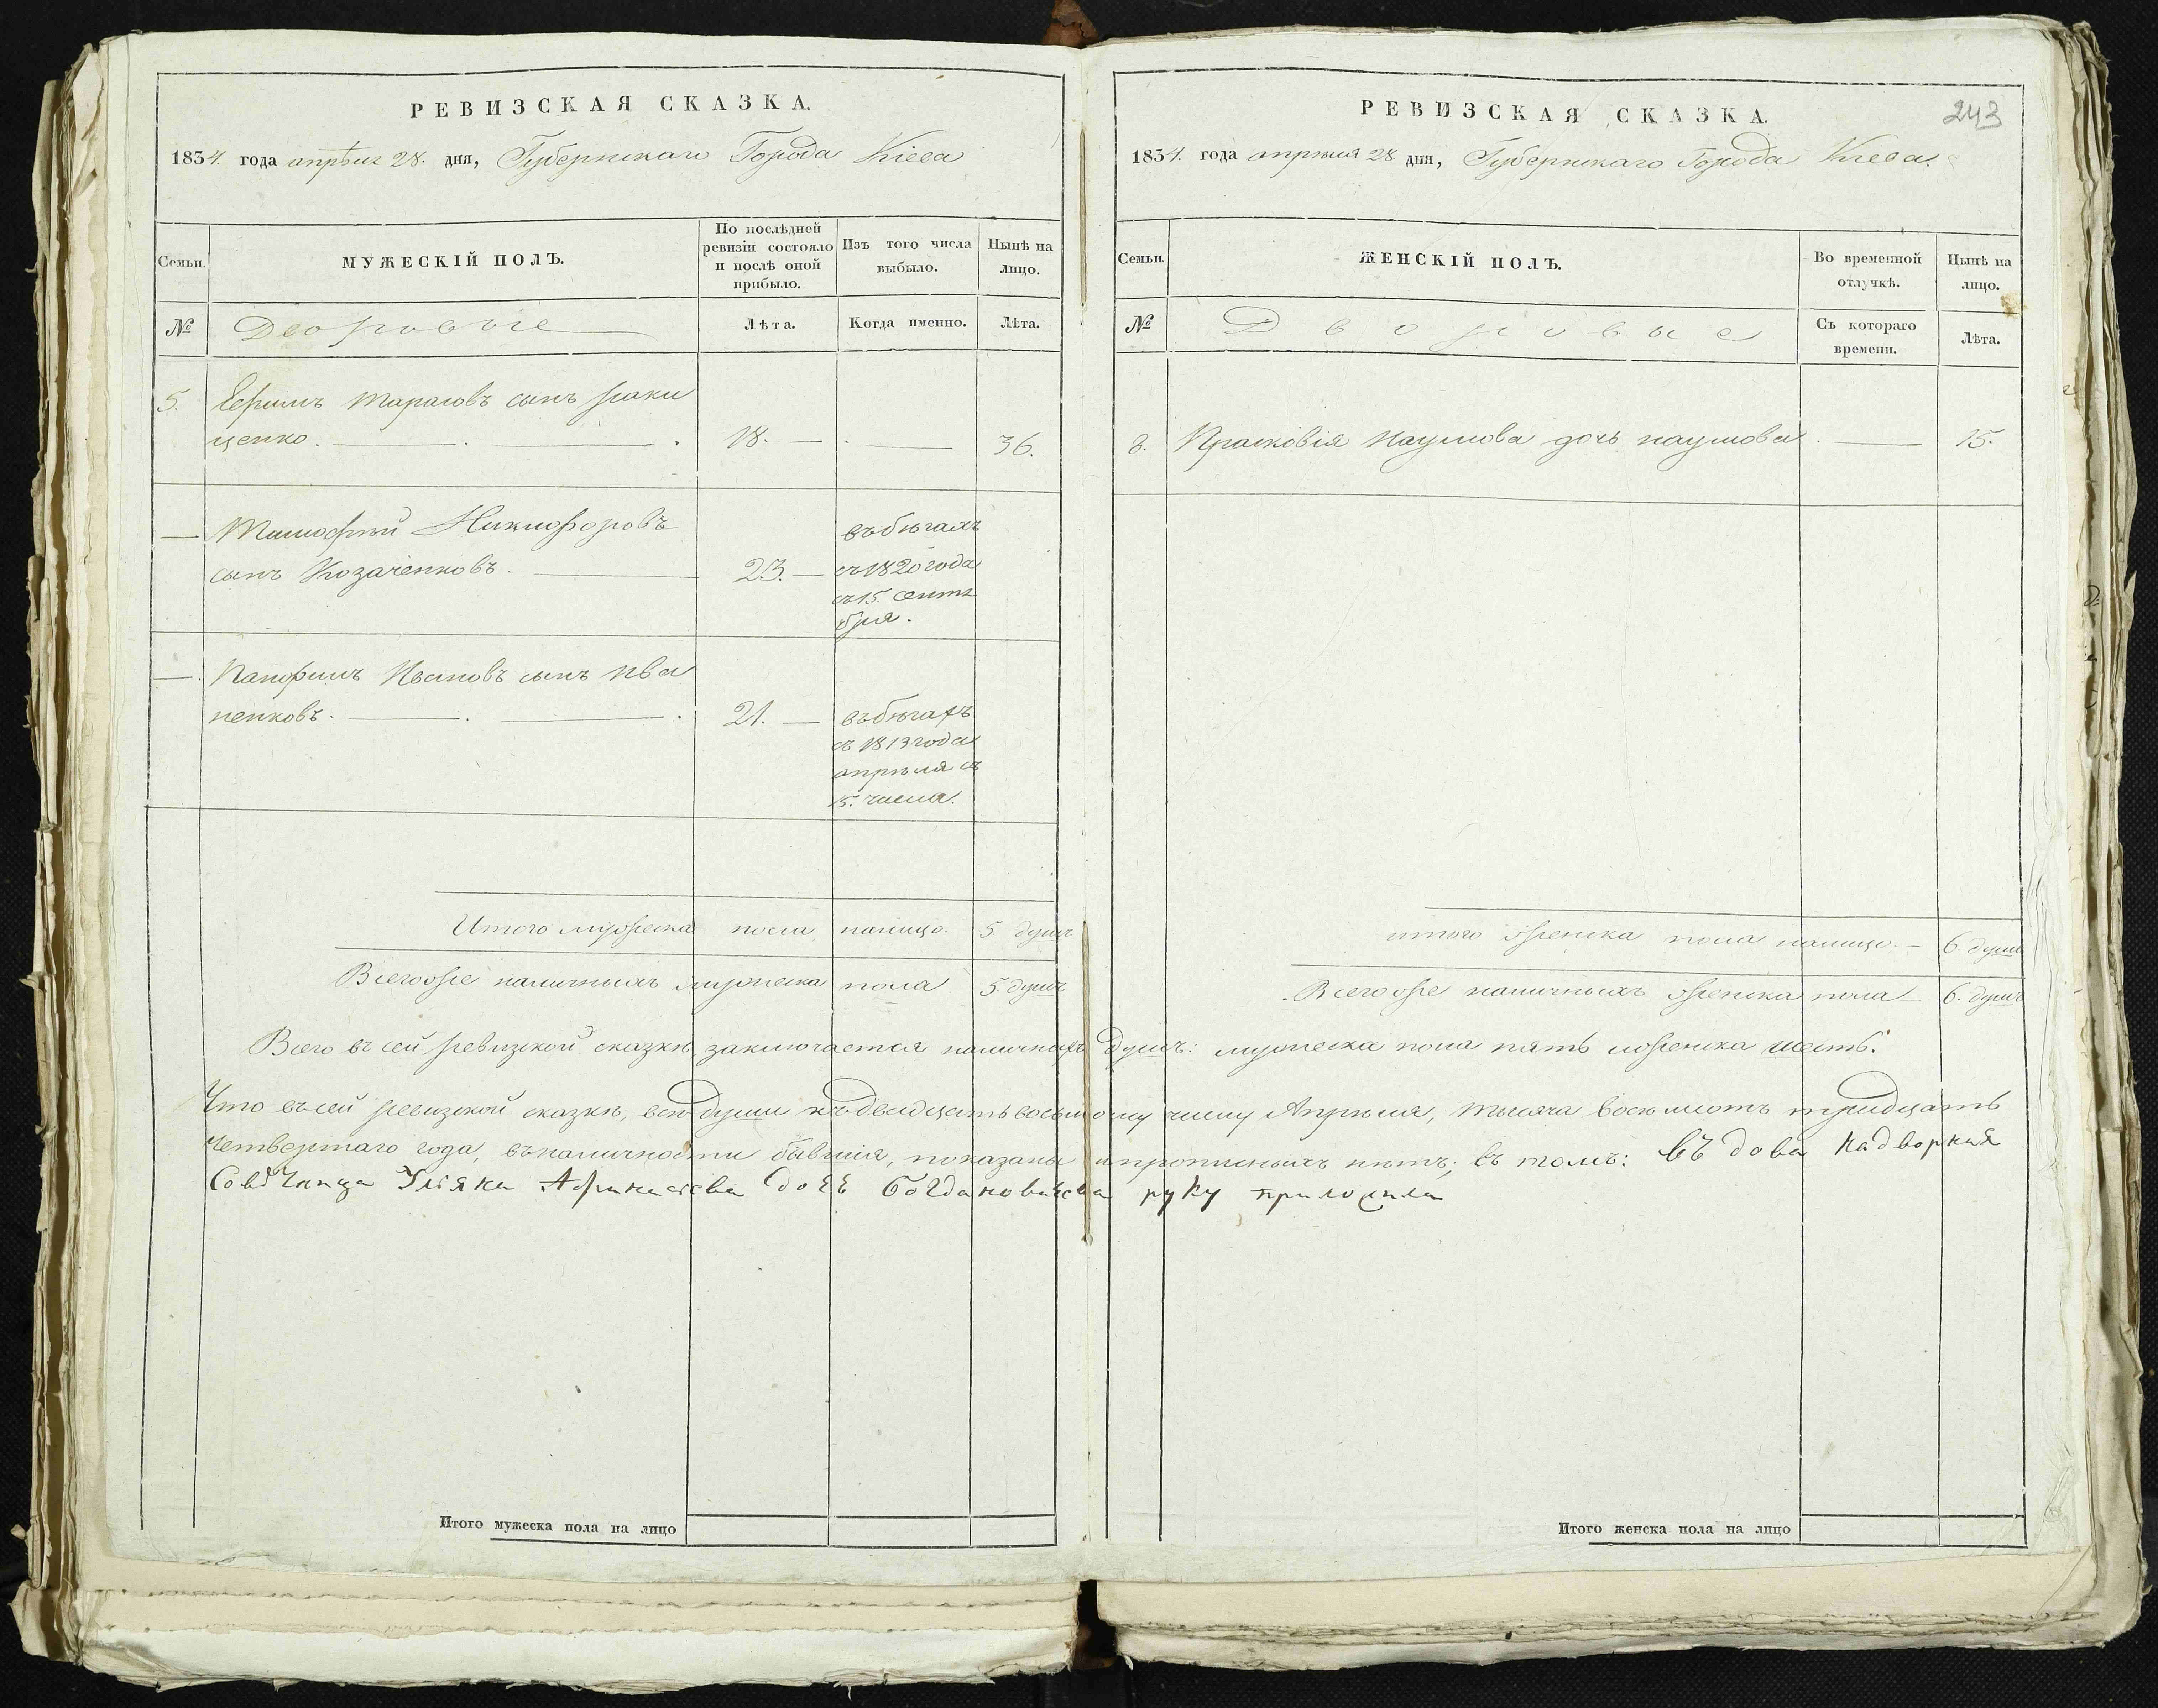 РЕВИЗСКАЯ СКАЗКА.
1834. года апрѣля 28. дня, Губернскаго Города Кіева
Семьи.
МУЖЕСКІЙ ПОЛЪ.
По послѣдней ревизіи состояло и послѣ оной прибыло.
Изъ того числа выбыло.
Нынѣ на лицо.
№
Дворовые
Лѣта.
Когда именно.
Лѣта.
5. Ефимъ Тарасовъ сынъ раки
ценко. 18. 36.
Тимофѣй Никифоровъ
сынъ Козаченковъ. 23.
въбѣгахъ
съ 1820 года
съ 15. Сентя
бря.
Панфилъ Ивановъ сынъ Ива
ненковъ. 21.
въбѣгахъ
съ 1819 года
апрѣля съ
15. числа.
Итого мужеска пола налицо. 5. душъ
Всегоже наличныхъ мужеска пола 5. душъ
Итого мужеска пола на лицо
РЕВИЗСКАЯ СКАЗКА.
243
1834. года апрѣля 28 дня, Губернскаго Города Кіева.
Семьи.
ЖЕНСКІЙ ПОЛЪ.
Во временной отлучкѣ.
Нынѣ на лицо.
№
Дворовые
Съ котораго времени.
Лѣта.
8. Прасковія Наумова дочь наумова 15.
итого женска пола налицо 6. душъ
Всегоже наличныхъ женска пола 6. душъ
Всего въ сей ревизской сказкѣ, заключается наличныхъ душъ: мужеска пола пять иженска шесть.
Что въсей ревизской сказкѣ, всѣ души къдвадцать восьмому числу Апрѣля, тысяча восемьсотъ тридцать
четвертаго года, въналичности бывшія, показаны ипрописныхъ нѣтъ; въ томъ: въдова надворная
Совѣтница Уліяна Афанасіева дочь Богдановичева руку приложила
Итого женска пола на лицо